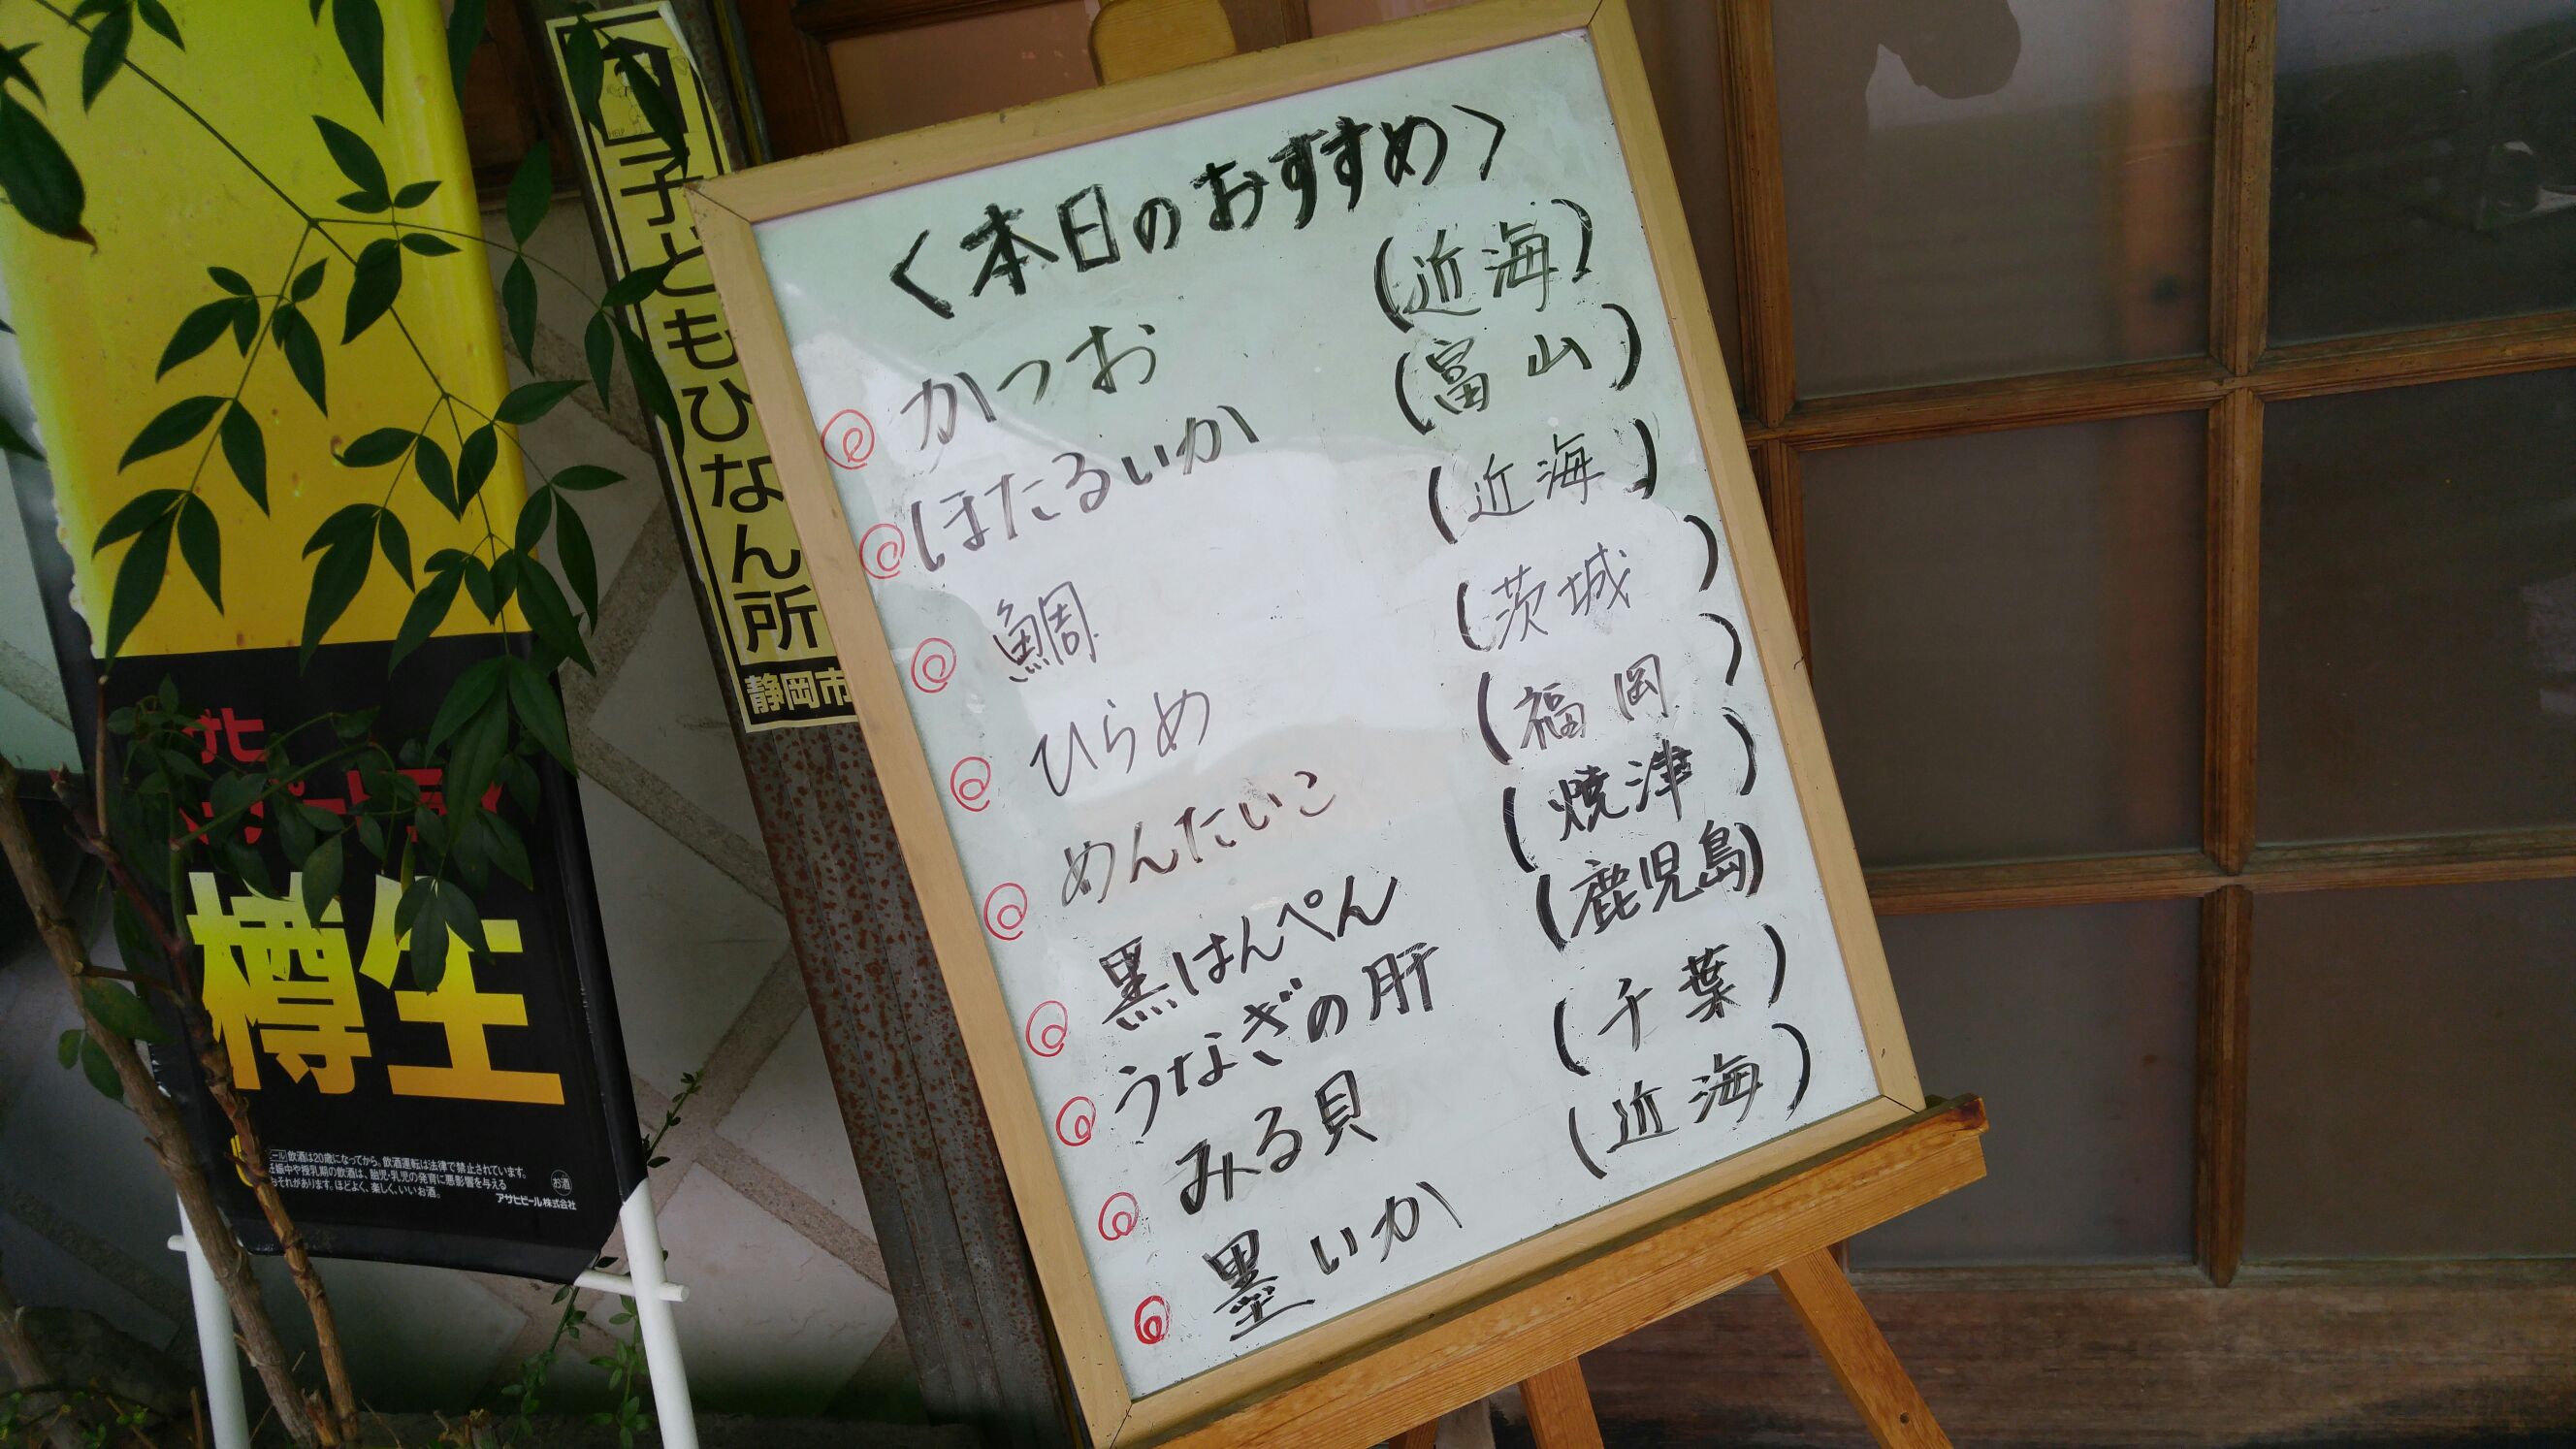 <本日のおすすめ>
かつお (近海)
ほたるいか (富山)
鯛 (近海)
ひらめ (茨城)
めんたいこ (福岡)
黒はんぺん (焼津)
うなぎの肝 (鹿児島)
みる貝 (千葉)
墨いか (近海)
子どもひなん所
静岡市
樽生
飲酒は20歳になってから。飲酒運転は法律で禁止されています。
妊娠中や授乳期の飲酒は、胎児・乳児の発育に悪影響を与える
おそれがあります。ほどよく、楽しく、いいお酒。
お酒
アサヒビール株式会社